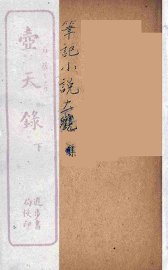 筆記小說大觀
壺天錄
下
進步書
局校印